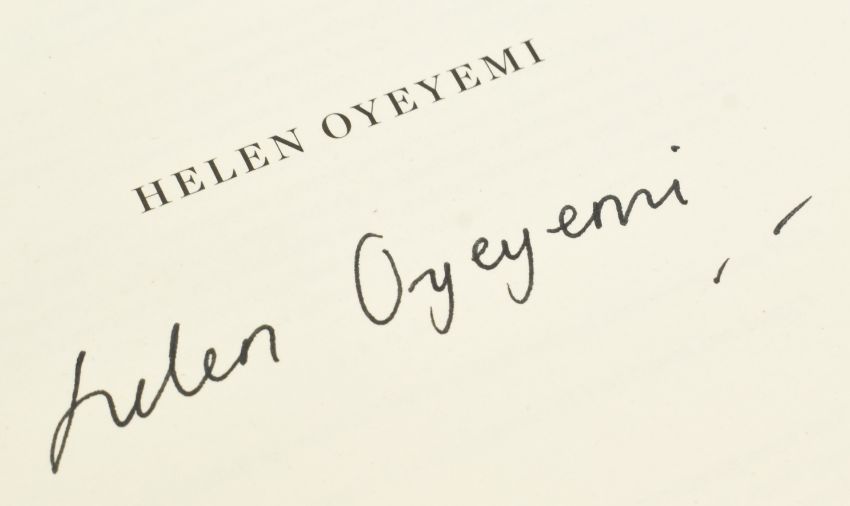 HELEN OYEYEMI
Helen Oyeyemi